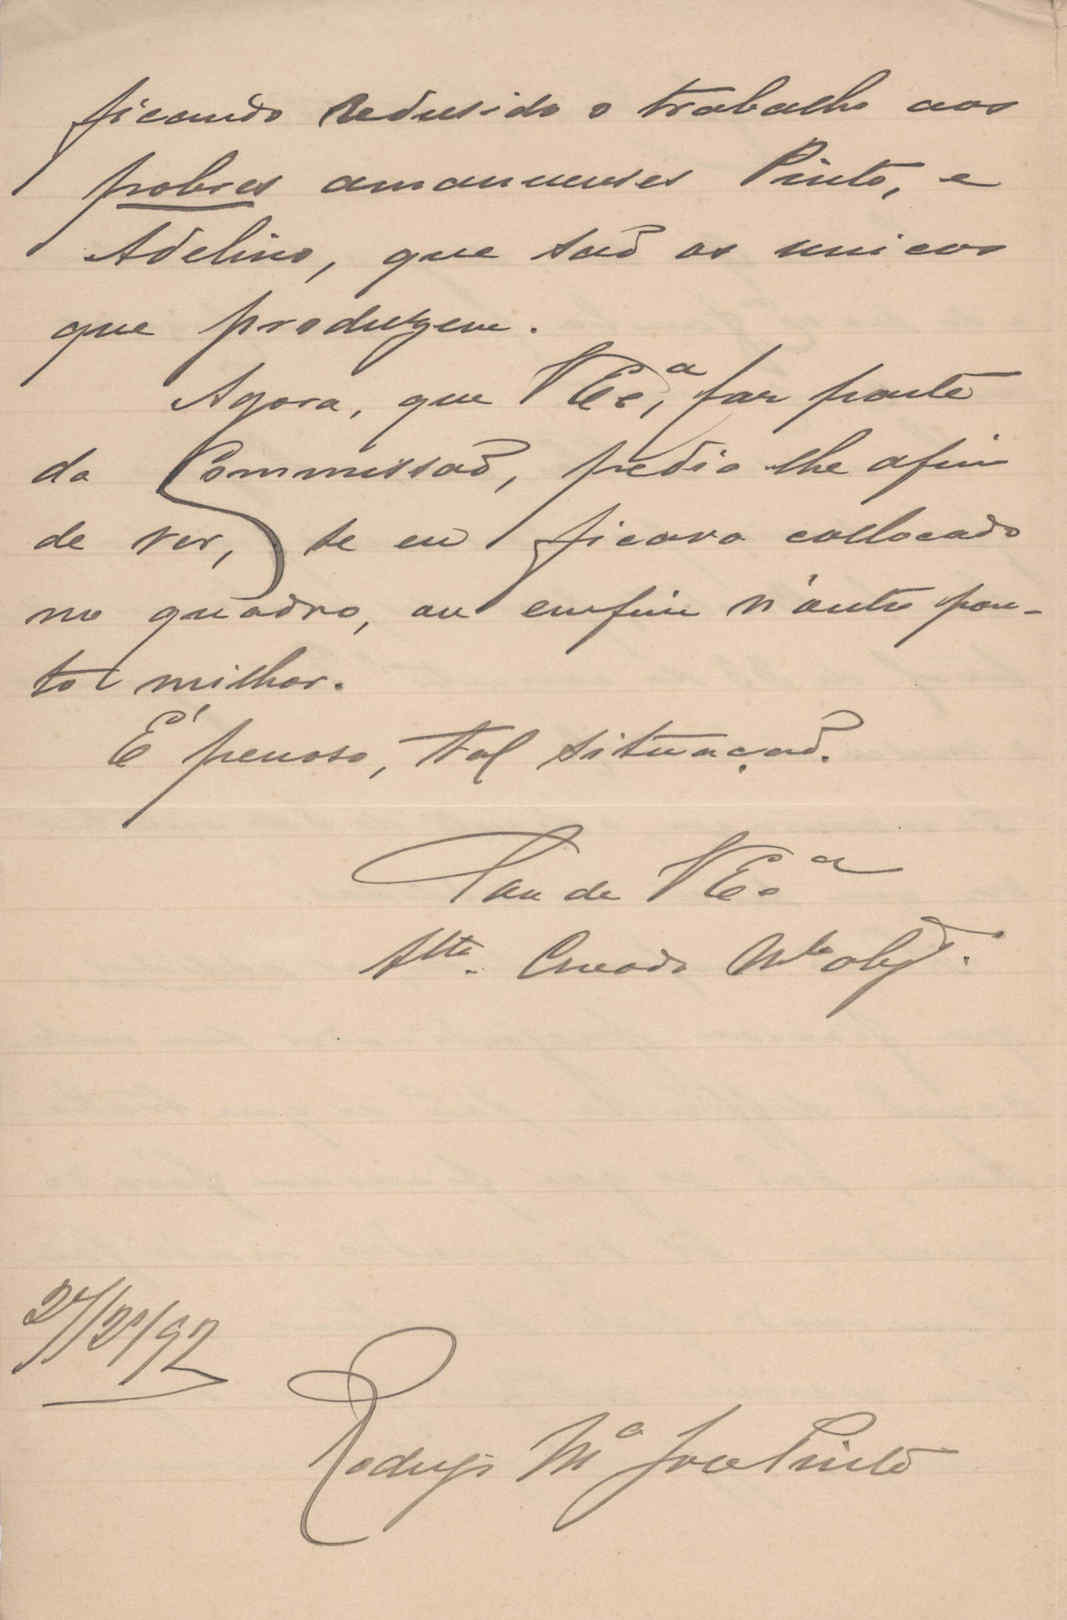 ficando redusido o trabalho aos
pobres amanuenses Pinto, e
Adelino, que saõ os unicos
que produzem.
Agora, que V Ex.ª, faz parte
da Commissaõ, pedia lhe afim
de ver, se eu ficava collocado
no quadro, ou emfim n'outro pon-
to milhor.
É penoso, tal situaçaõ.
Sou de V Ex.ª
Atto. Creado Mto obgdo.
27/2/92
Rodrigo Mª José Pinto